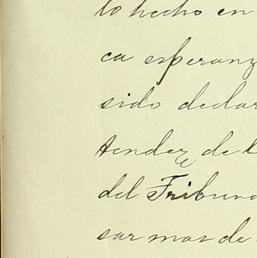 lo hecho en
ca esperanz
sido declar
tender de l
del Tribuna
sar mas de